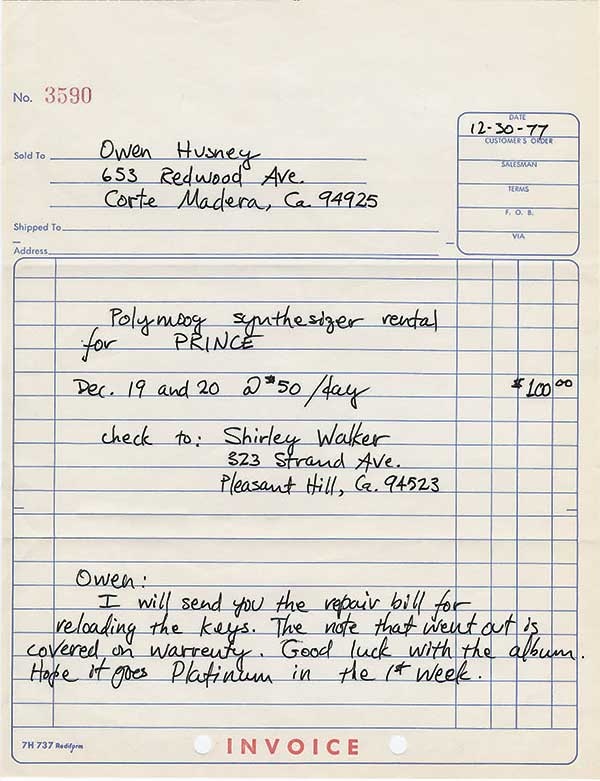 No. 3590
DATE
12-30-77
CUSTOMER'S ORDER
SALESMAN
TERMS
F. O. B.
VIA
Sold To Owen Husney
653 Redwood Ave.
Corte Madera, Ca. 94925
Shipped To
Address
Polymoog synthesizer rental
for PRINCE
Dec. 19 and 20 @ $50 /day $100 00
check to: Shirley Walker
323 Strand Ave.
Pleasant Hill, Ca. 94523
Owen:
I will send you the repair bill for
reloading the keys. The note that went out is
covered on warrenty. Good luck with the album.
Hope it goes Platinum in the 1st week.
7H 737 Rediform
INVOICE